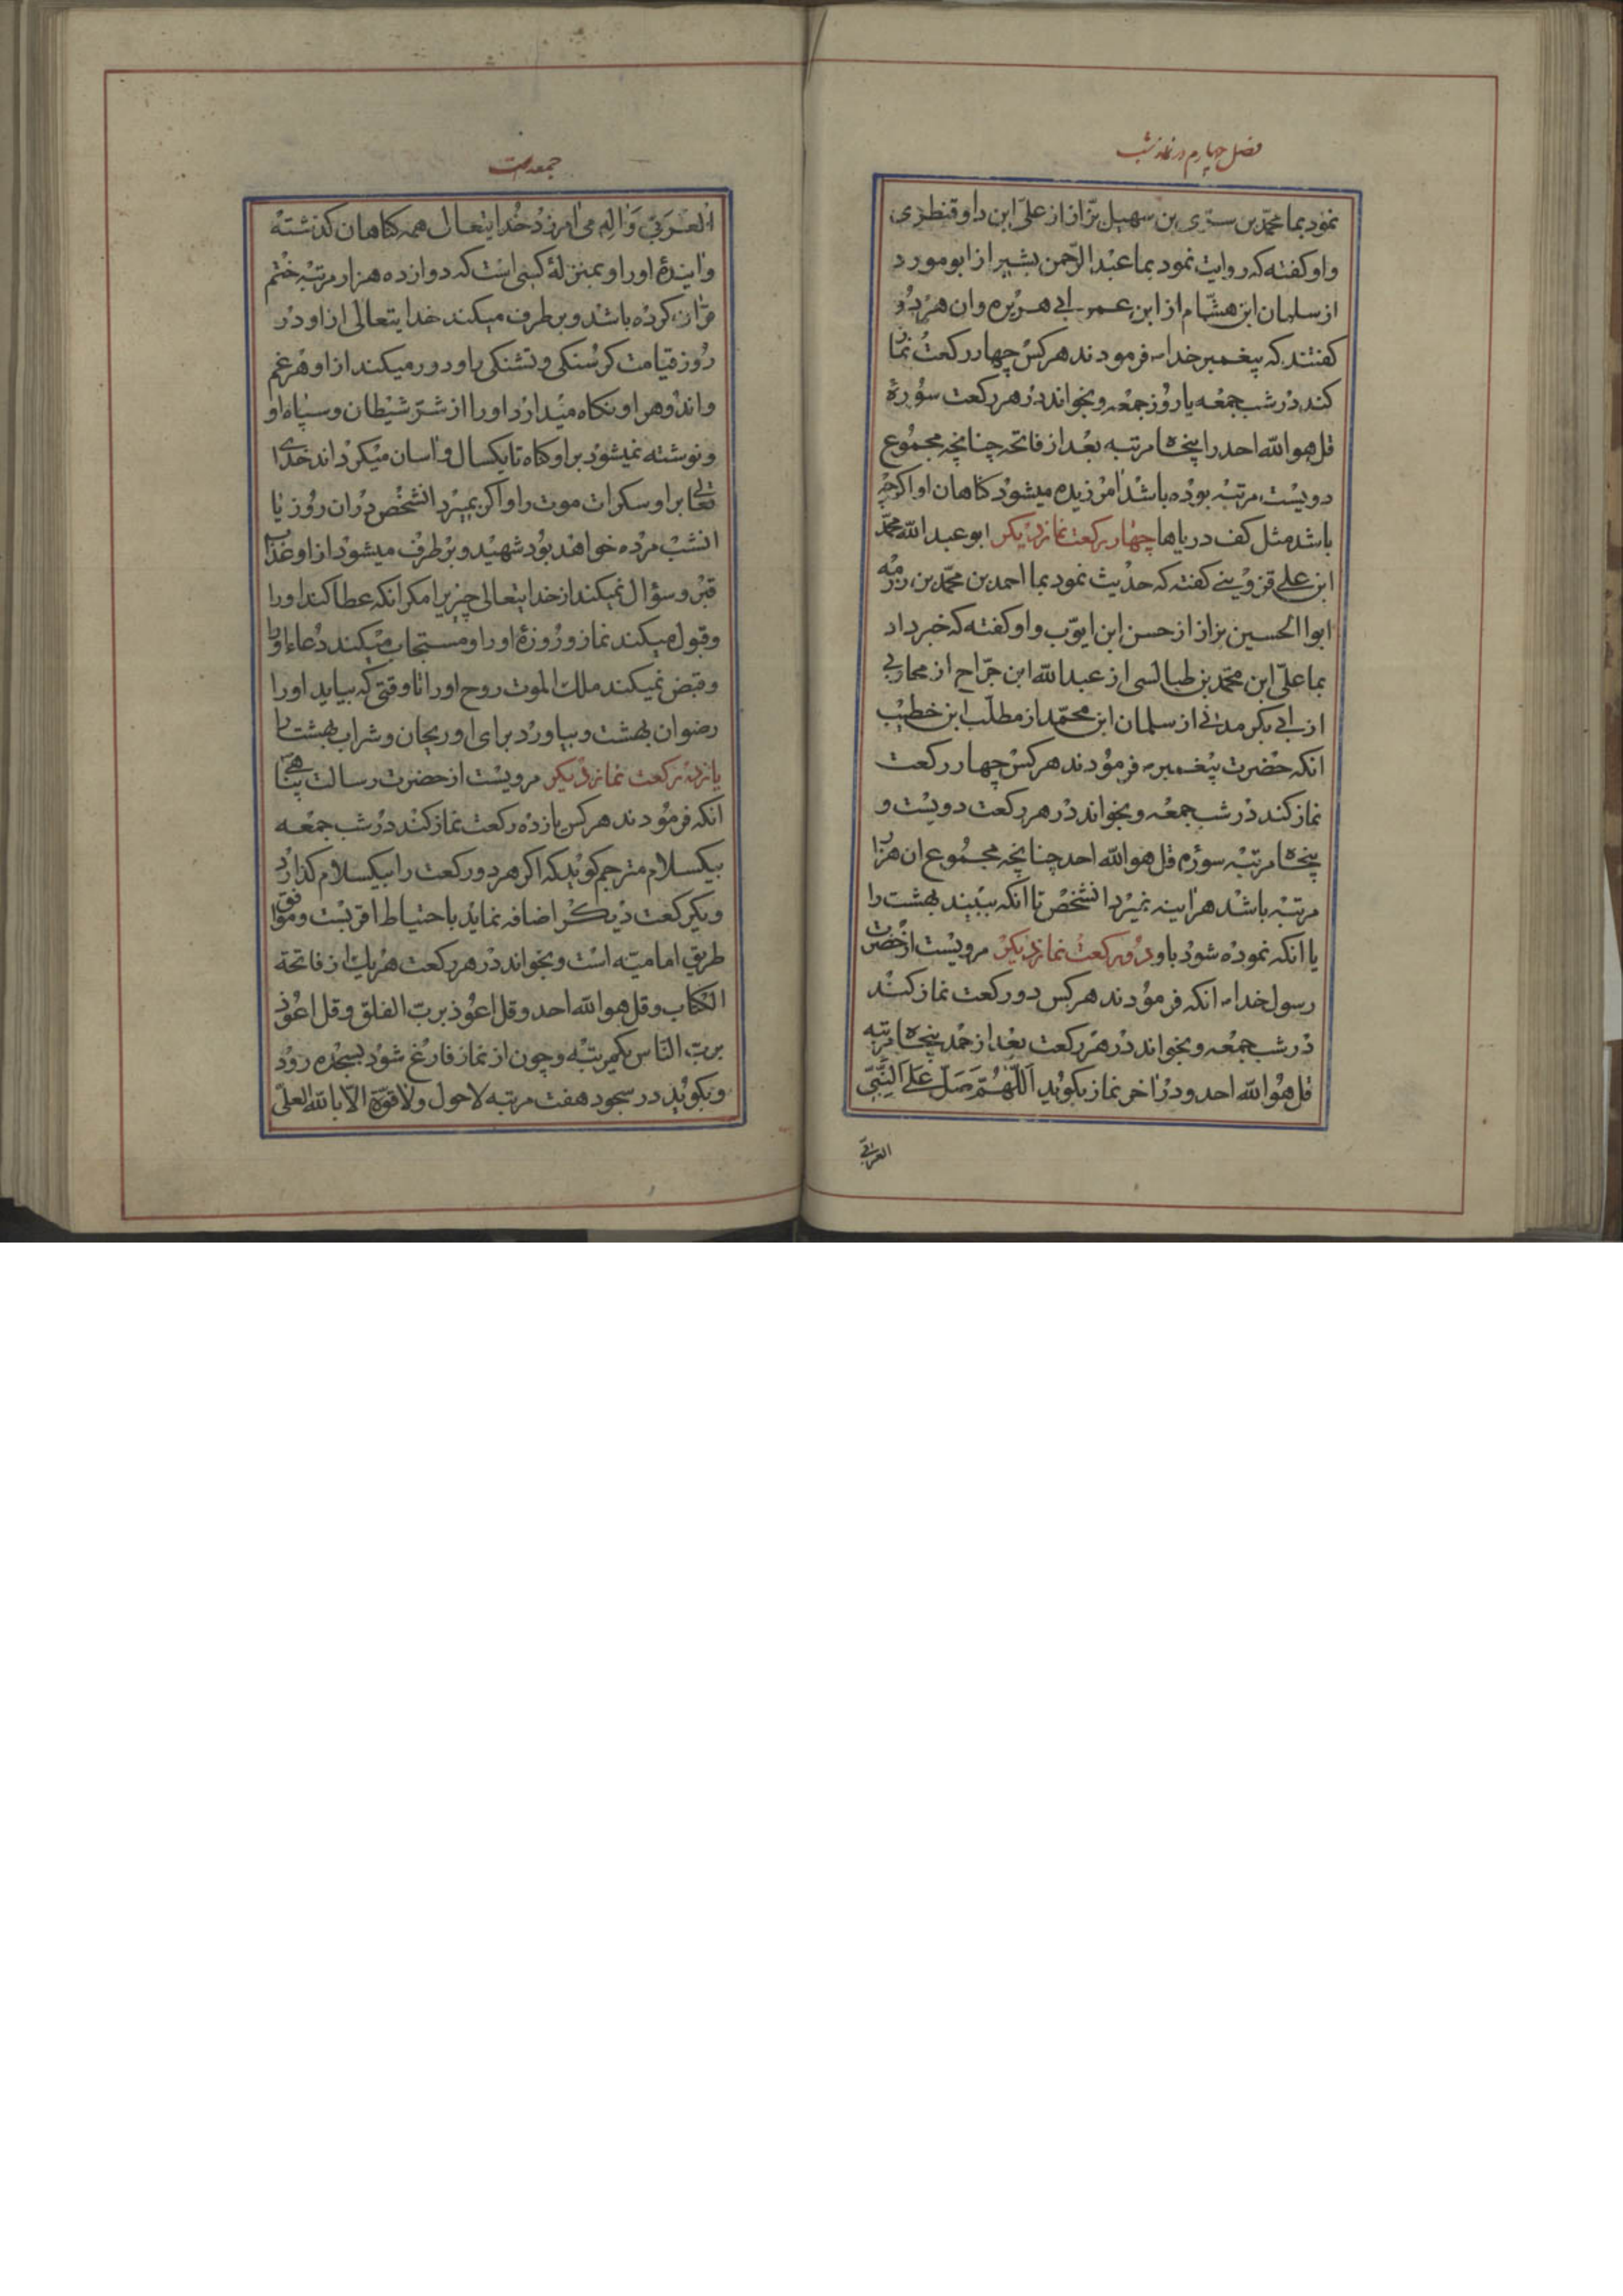 فصل چهارم در نماز شب
نمود بما محمّد بن سرّی بن سهیل بزّاز از علی ابن داو قنطری
و او کفته که روایت نمود بما عبد الرّحمن بشیر از ابو مورد
از سلمان ابن هشّام از ابن عمر ابی هریره و ان هر دو
کفتند که پیغمبر خدا ص فرمودند هر کس چهار رکعت نماز
کند در شب جمعه یا روز جمعه و بخواند در هر رکعت سوره
قل هو الله احد را پنجاه مرتبه بعد از فاتحه چنانچه مجموع
دویست مرتبه بوده باشد امرزیده میشود کناهان او اکرچه
باشد مثل کف دریاها چهار رکعت نماز دیکر ابو عبد الله محمّد
ابن علی قزوینی کفته که حدیث نمود بما احمد بن محمّد بن رزمه
ابوا الحسین بزاز از حسن ابن ایوّب و او کفته که خبر داد
بما علیّ ابن محمّد بن طیالسی از عبد الله ابن جرّاح از محاربی
از ابی بکر مدنی از سلمان ابن محمّد از مطلّب ابن خطیب
انکه حضرت پیغمبر ص فرمودند هر کس چهار رکعت
نماز کند در شب جمعه و بخواند در هر رکعت دویست و
پنجاه مرتبه سوره قل هو الله احد چنانچه مجموع ان هزار
مرتبه باشد هراینه نمیرد انشخص تا انکه ببیند بهشت را
یا انکه نموده شود باو دو رکعت نماز دیکر مرویست از حضرت
رسول خدا ص انکه فرمودند هر کس دو رکعت نماز کند
در شب جمعه و بخواند در هر رکعت بعد از حمد پنجاه مرتبه
قل هو الله احد و در اخر نماز بکوید اَللّهُمَّ صَلِّ عَلَی النَّبِیِّ
العربیّ
جمعه است
اَلعَرَبِیِّ وَ الِهِ می امرزد خدایتعالی همه کناهان کذشته
و ایندهٔ او را و بمنزلهٔ کسی است که دوازده هزار مرتبه ختم
قران کرده باشد و بر طرف میکند خدایتعالی از او در
روز قیامت کرسنکی و تشنکی را و دور میکند از او هر غم
و اندوه را و نکاه میدارد او را از شرّ شیطان و سپاه او
و نوشته نمیشود بر او کناه تا یکسال و اسان میکرداند خدای
تعالی بر او سکرات موت را و اکر بمیرد انشخص در ان روز یا
انشب مرده خواهد بود شهید و بر طرف میشود از او عذاب
قبر و سؤال نمیکند از خدایتعالی چیزیرا مکر انکه عطا کند او را
و قبول میکند نماز و روزهٔ او را و مستجاب میکند دعاء او را
و قبض نمیکند ملک الموت روح او را تا وقتی که بیاید او را
رضوان بهشت و بیاورد برای او ریحان و شراب بهشت را
یازده رکعت نماز دیکر مرویست از حضرت رسالت پناهی
انکه فرمودند هر کس یازده رکعت نماز کند در شب جمعه
بیکسلام مترجم کوید که اکر هر دو رکعت را بیکسلام کذارد
و یکرکعت دیکر اضافه نماید باحتیاط اقربست و موافق
طریق امامیّه است و بخواند در هر رکعت هر یک از فاتحة
الکتاب و قل هو الله احد و قل اعوذ بربّ الفلق و قل اعوذ
بربّ النّاس یکمرتبه و چون از نماز فارغ شود بسجده رود
و بکوید در سجود هفت مرتبه لا حول و لا قوّة الّا بالله العلیّ